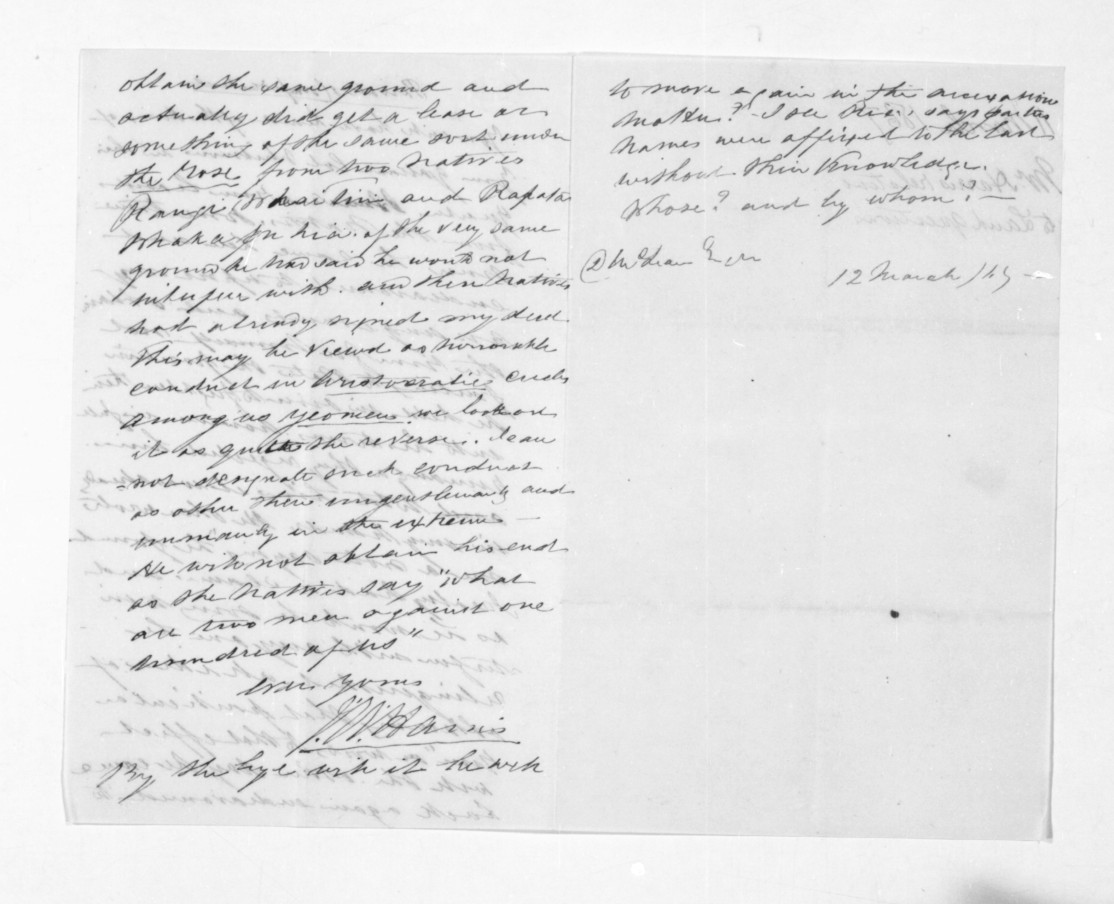 obtain the same ground and
actually did get a lease or
something of the same sort under
the Rose from two Natives
Rangi and Rapata
Whaka of the very same
ground he had said he would not
interfere with. and these Natives
had already signed my deed
This may be viewd as honorable
conduct in Aristocratic circles
among us yeomen we look on
it as quite the reverse. I can
not designate such conduct
as other then ungentlemanly and
unmanly in the extreme —
He will not obtain his end
as the Natives say "What
are two men against one
hundred of us"
Yours
J.W. Harris
By the bye will it be well
to move again in the
matter? I see says parties
names were affixed to the last
without their knowledge.
Whose? and by whom? —
D McLean Esqr
12 March /69 —